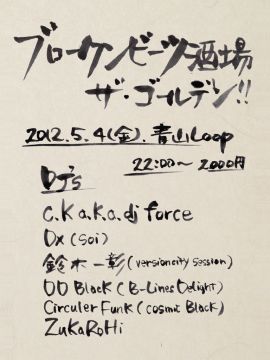 ブロークンビーツ酒場
ザ・ゴールデン!!
2012.5.4(金).青山Loop
22:00〜 2000円
DJ's
C.K a.k.a. dj force
Dx (Soi)
鈴木一彰(versioncity session)
DD Black (B-Lines Delight)
Circuler Funk (cosmic Black)
ZUKAROHi